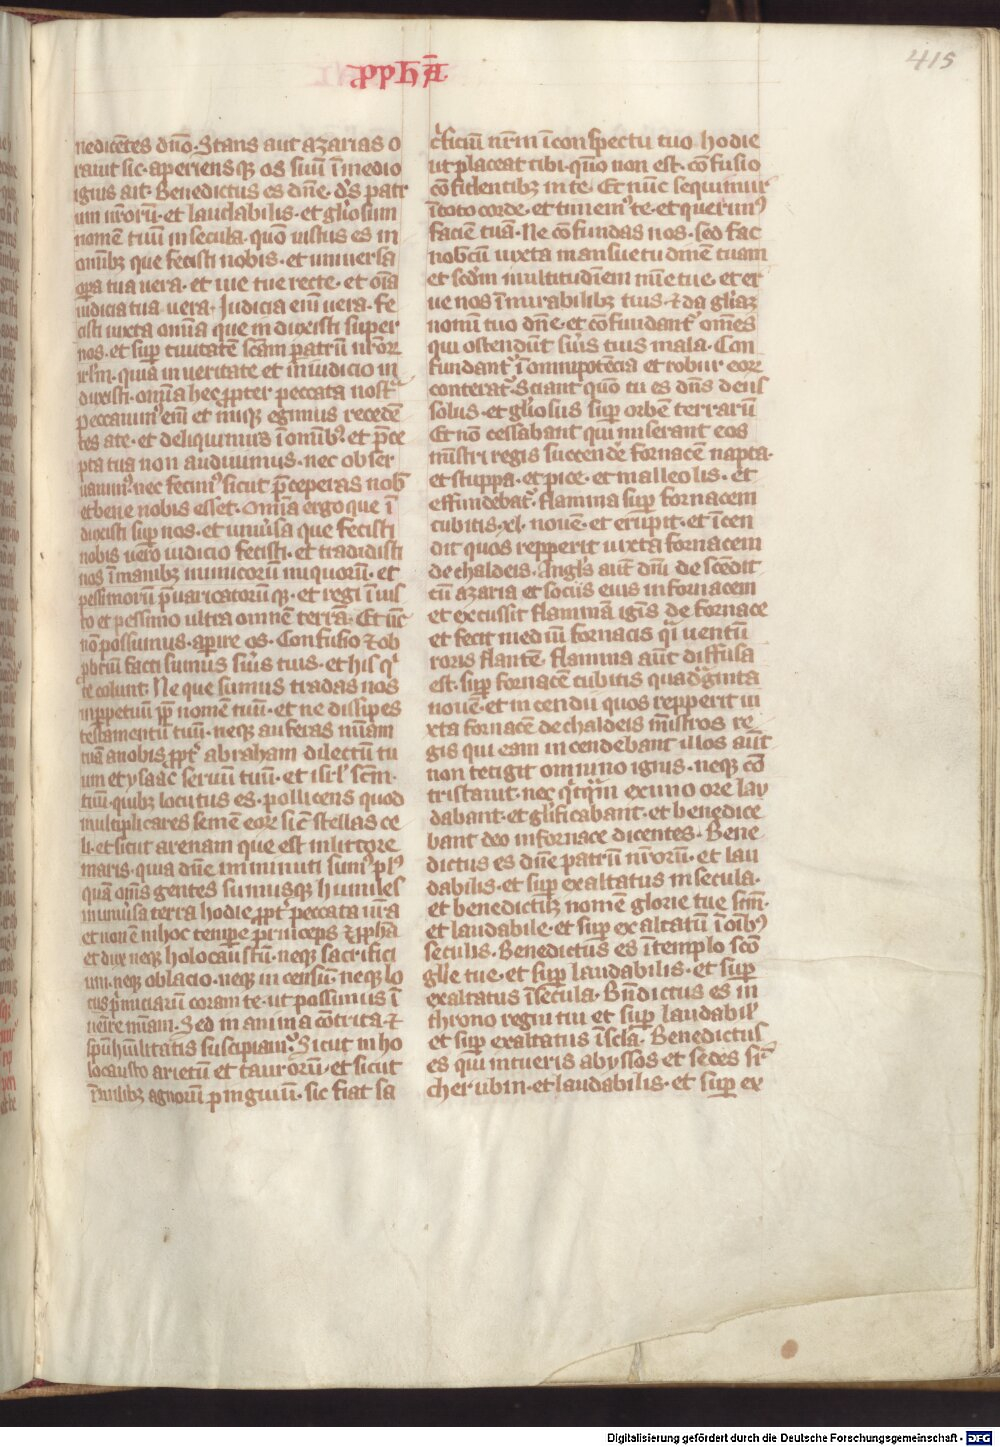 ꝓph̄a
415
nedicētes dn̄o. Stans aut azarias o
rauit sic. aperiensqꝫ os suū ī medio
ignis ait. Benedictus es dn̄e. ds̄ patr
um nr̄orū. et laudabilis. et gl̓iosum
nomē tuū in secula. quō iustus es in
omībꝫ que fecisti nobis. et uniuersa
oꝑa tua uera. et uie tue recte. et oīa
iudicia tua uera. Judicia eni͞ uera. fe
cisti iuxta om̄ia que in duxisti super
nos. et suꝑ ciuitatē scām patrū nr̄oꝝ
irl̄m. quia in ueritate et in iudicio in
duxisti. om̄ia hec ꝓpter peccata nostr̓
peccauim᷒ eni͞ et iniqꝫ egimus receden̄
tes a te. et deliquimus ī omībꝫ. et p̄ce
pta tua non audiuimus. nec obser
uauim᷒. nec fecim᷒ sicut p̄ceperas nob̄
et bene nobis esset. Om̄ia ergo que ī
duxisti suꝑ nos. et uniuersa que fecisti
nobis uero iudicio fecisti. et tradidisti
nos ī manibꝫ inimicorū iniquorū. et
pessimorū p̄uaricatorū qꝫ. et regi ī ius
to et pessimo ultra omnem terrā. Et n̄c
nō possumus. aꝑire os. Confusio ⁊ ob
ꝓbriū facti sumus s̓uis tuis. et his qͥ
te colunt. Ne que sumus tradas nos
inꝑpetuū ꝓp̄ nomē tuū. et ne dissipes
testamentū tuū. neqꝫ auferas mīam
tuā a nobis ꝓpt̓ abraham dilectū tu
um et ysaac seruū tuū. et isrl̄ scm̄
tuū. quibꝫ locutus es. pollicens quod
multiplicares semē eoꝝ sic̄ stellas ce
li. et sicut arenam que est in littore
maris. quia dn̄e imminuti sum᷒ pl᷒
quā om̄s gentes sumusqꝫ humiles
in uniu̓sa terra hodie ꝓpt̓ peccata nr̄a
et non ē in hoc tempore p̄rinceps ⁊ ꝓpha
et dux neqꝫ holocaustū. neqꝫ sacrifici
um. neqꝫ oblacio. neqꝫ in censū. neqꝫ lo
cus p̓miciarū coram te. ut possimus ī
uēire mīam. Sed in anima cōtrita ⁊
spū hūilitatis suscipiam᷒. Sicut in ho
locausto arietum et taurorū. et sicut
ī milibꝫ agnorū pinguiū. sic fiat sa
c̓ficiū nr̄m ī conspectu tuo hodie
ut placeat tibi. quō non est. cōfusio
cōfidentibꝫ in te. Et nūc sequimur
ī toto corde. et timem᷒ te. et querim᷒
faciē tuā. Ne cōfundas nos. sed fac
nob̄cū iuxta mansuetudinē tuam
et scd̄m multitudīem mīe tue. et er
ue nos ī mirabilibꝫ tuis. ⁊ da gl̓iaꝫ
nomī tuo dn̄e. et cōfundant᷒ omēs
qui ostendūt s̓uis tuis mala. Con
fundant᷒ ī omnipotēcia et robur eoꝝ
conterat᷒. Sciant quō tu es dn̄s deus
solus. et gl̓iosus suꝑ orbē terrarū
Et nō cessabant qui miserant eos
mīstri regis succende᷒ fornacē napta.
et stuppa. et pice. et malleolis. et
effundebat᷒. flamma suꝑ fornacem
cubitis. xl. nouē. et erupit. et ī cen
dit quos repperit iuxta fornacem
de chaldeis. Angl̓s aut̄ dn̄i de scēdit
cū azaria et sociis eius in fornacem
et excussit flammā ignīs de fornace
et fecit mediū fornacis qͣi uentū
roris flantē. flamma aūt diffusa
est. suꝑ fornacē cubitis quadͣginta
nouē. et in cendit quos repperit iu
xta fornacē de chaldeis mīstros re
gis qui eam in cendebant illos aūt
non tetigit omnino ignis. neqꝫ cō
tristauit. nec qͥcqͣm ex uno ore lau
dabant. et gl̓ificabant. et benedice
bant deo in fornace dicentes. Bene
dictus es dn̄e patrū nr̄orū. et lau
dabilis. et suꝑ exaltatus in secula.
et benedictū nomē glorie tue scm̄.
et laudabile. et suꝑ exaltatū ī oībꝫ
seculis. Benedictus es ī templo scō
gl̓ie tue. et suꝑ laudabilis. et suꝑ
exaltatus ī secula. Bn̄dictus es in
throno regni tui et suꝑ laudabil̓
et suꝑ exaltatus ī scl̄a. Benedictus
es qui intueris abyssos et sedes sr̄
cherubin. et laudabilis. et suꝑ ex
Digitalisierung gefördert durch die Deutsche Forschungsgemeinschaft - DFG